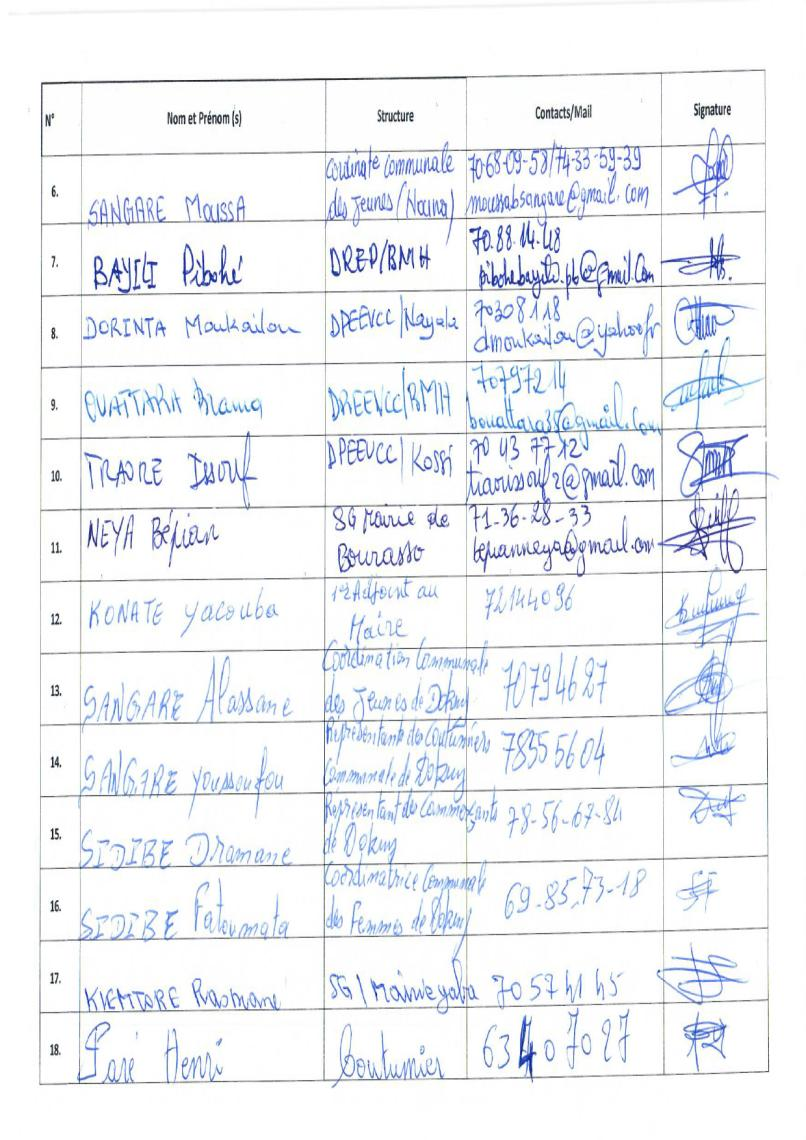 N° Nom et Prénom (s) Structure Contacts/Mail Signature
6. SANGARE Moussa Coordinate Communale des Jeunes (Nouna) 70-68-09-58/74-33-59-39 moussabsangare@gmail.com
7. BAYILI Pibohé DREP/BMH 70.88.14.48 pibohebayili.pb@gmail.com
8. DORINTA Moukailou DPEEVCC/Nayala 70308118 dmoukailou@yahoo.fr
9. OUATTARA Brama DREEVCC/BMH 70797214 bouattara35@gmail.com
10. TRAORE Issouf DPEEVCC/Kossi 70 43 77 12 traorissouf2@gmail.com
11. NEYA Bépian SG Mairie de Bourasso 71-36-28-33 bepianneya@gmail.com
12. KONATE Yacouba 1er Adjoint au Maire 72144096
13. SANGARE Alassane Coordination Communale des Jeunes de Dokuy 70794627
14. SANGARE Youssoufou Représentante des Coutumiers Communale de Dokuy 78355604
15. SIDIBE Dramane Représentant des Commerçants de Dokuy 78-56-67-84
16. SIDIBE Fatoumata Coordinatrice Communale des Femmes de Dokuy 69-85-73-18
17. KIEMTORE Rasmane SG/Mairie yaba 70 57 41 45
18. Paré Henri Coutumier 63407027